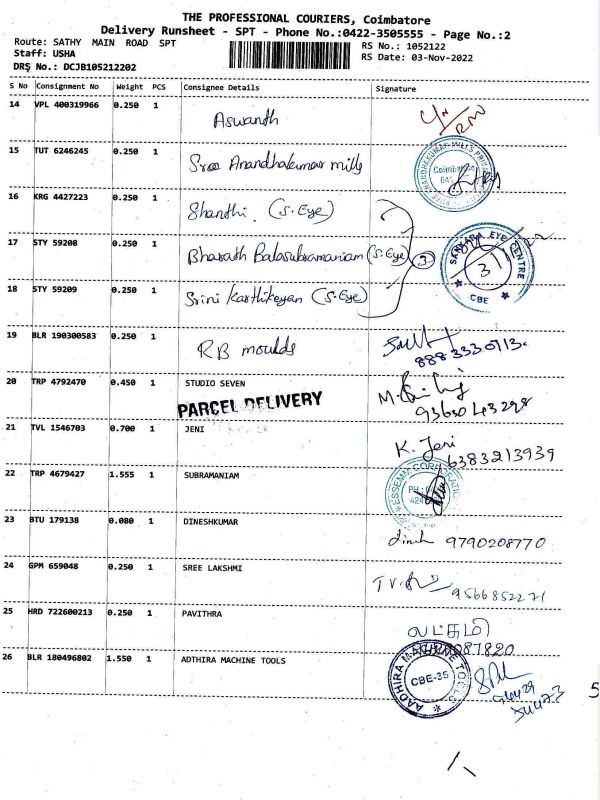 THE PROFESSIONAL COURIERS, Coimbatore
Delivery Runsheet - SPT - Phone No.:0422-3505555 - Page No.:2
Route: SATHY MAIN ROAD SPT
RS No.: 1052122
Staff: USHA
RS Date: 03-Nov-2022
DRS No.: DCJB105212202
S No Consignment No Weight PCS Consignee Details Signature
14 VPL 400319966 0.250 1 Aswanth
15 TUT 6246245 0.250 1 Sree Anandhakumar mills
Coimbatore
16 KRG 4427223 0.250 1 Shanthi. (S.Eye)
17 STY 59208 0.250 1 Bharath Balasubramaniam (S.Eye) 3
SANKARA EYE CENTRE
CBE
18 STY 59209 0.250 1 Srini Karthikeyan (S.Eye)
19 BLR 190300583 0.250 1 RB moulds
20 TRP 4792470 0.450 1 STUDIO SEVEN
PARCEL DELIVERY
21 TVL 1546703 0.700 1 JENI K. Jeni
6383213939
22 TRP 4679427 1.555 1 SUBRAMANIAM
23 BTU 179138 0.080 1 DINESHKUMAR
dinesh 9790208770
24 GPM 659048 0.250 1 SREE LAKSHMI
9566852271
25 HRD 722600213 0.250 1 PAVITHRA
26 BLR 180496802 1.550 1 ADTHIRA MACHINE TOOLS
AADHIRA MACHINE TOOLS
CBE-35
5